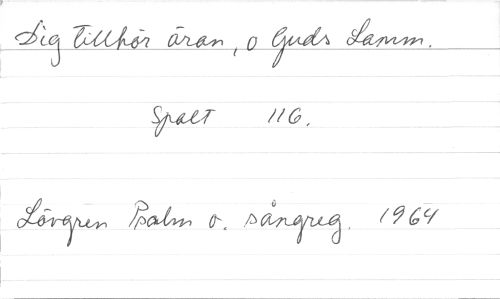 Dig tillhör äran, o Guds Lamm.
Spalt 116.
Lövgren Psalm o. sångreg. 1964